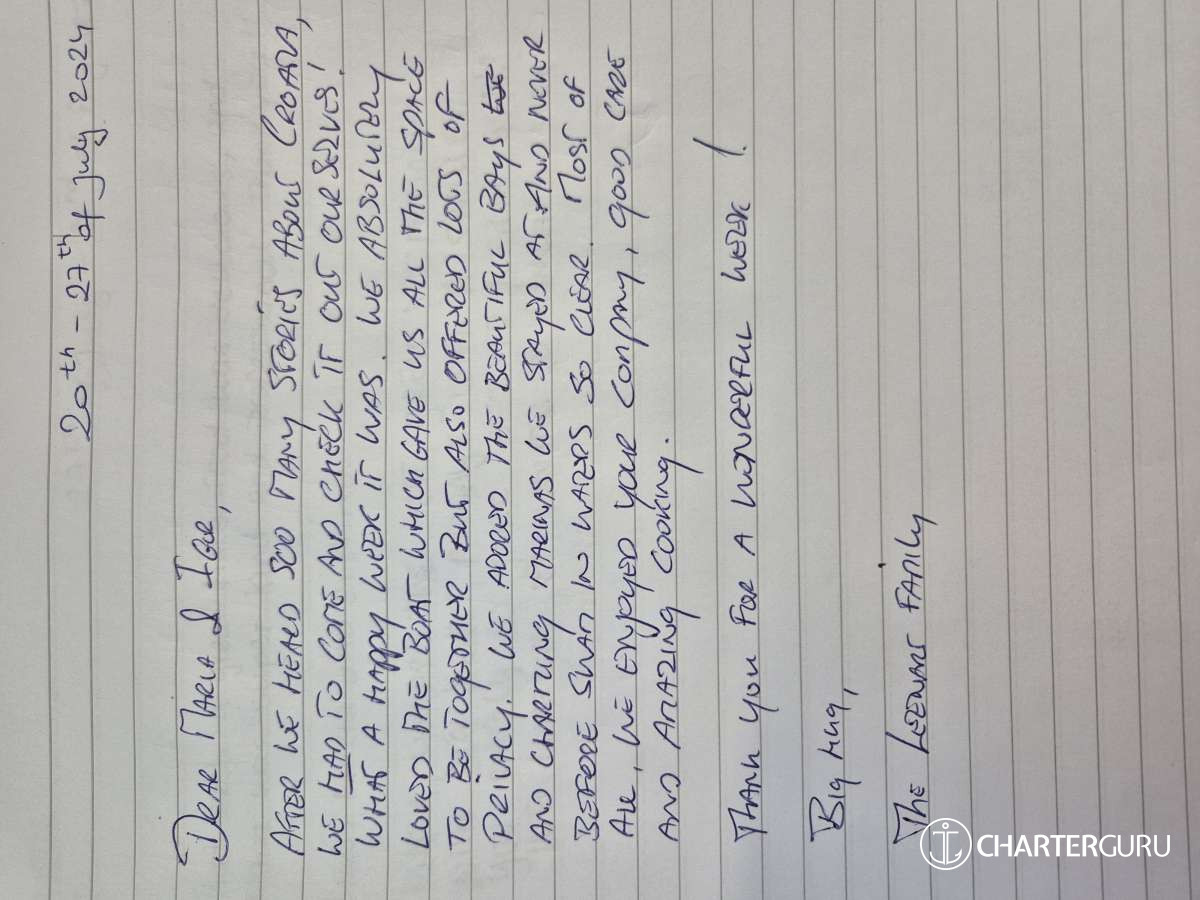 20th - 27th of july 2024
DEAR MARIA & IGOR,
AFTER WE HEARD SOO MANY STORIES ABOUT CROATIA,
WE HAD TO COME AND CHECK IT OUT OURSELVES!
WHAT A HAPPY WEEK IT WAS. WE ABSOLUTELY
LOVED THE BOAT WHICH GAVE US ALL THE SPACE
TO BE TOGETHER BUT ALSO OFFERED LOTS OF
PRIVACY. WE ADORED THE BEAUTIFUL BAYS
AND CHARMING MARINAS WE STAYED AT AND NEVER
BEFORE SWAM IN WATERS SO CLEAR. MOST OF
ALL, WE ENJOYED YOUR COMPANY, GOOD CARE
AND AMAZING COOKING.
THANK YOU FOR A WONDERFUL WEEK!
BIG HUG,
THE FAMILY
CHARTERGURU